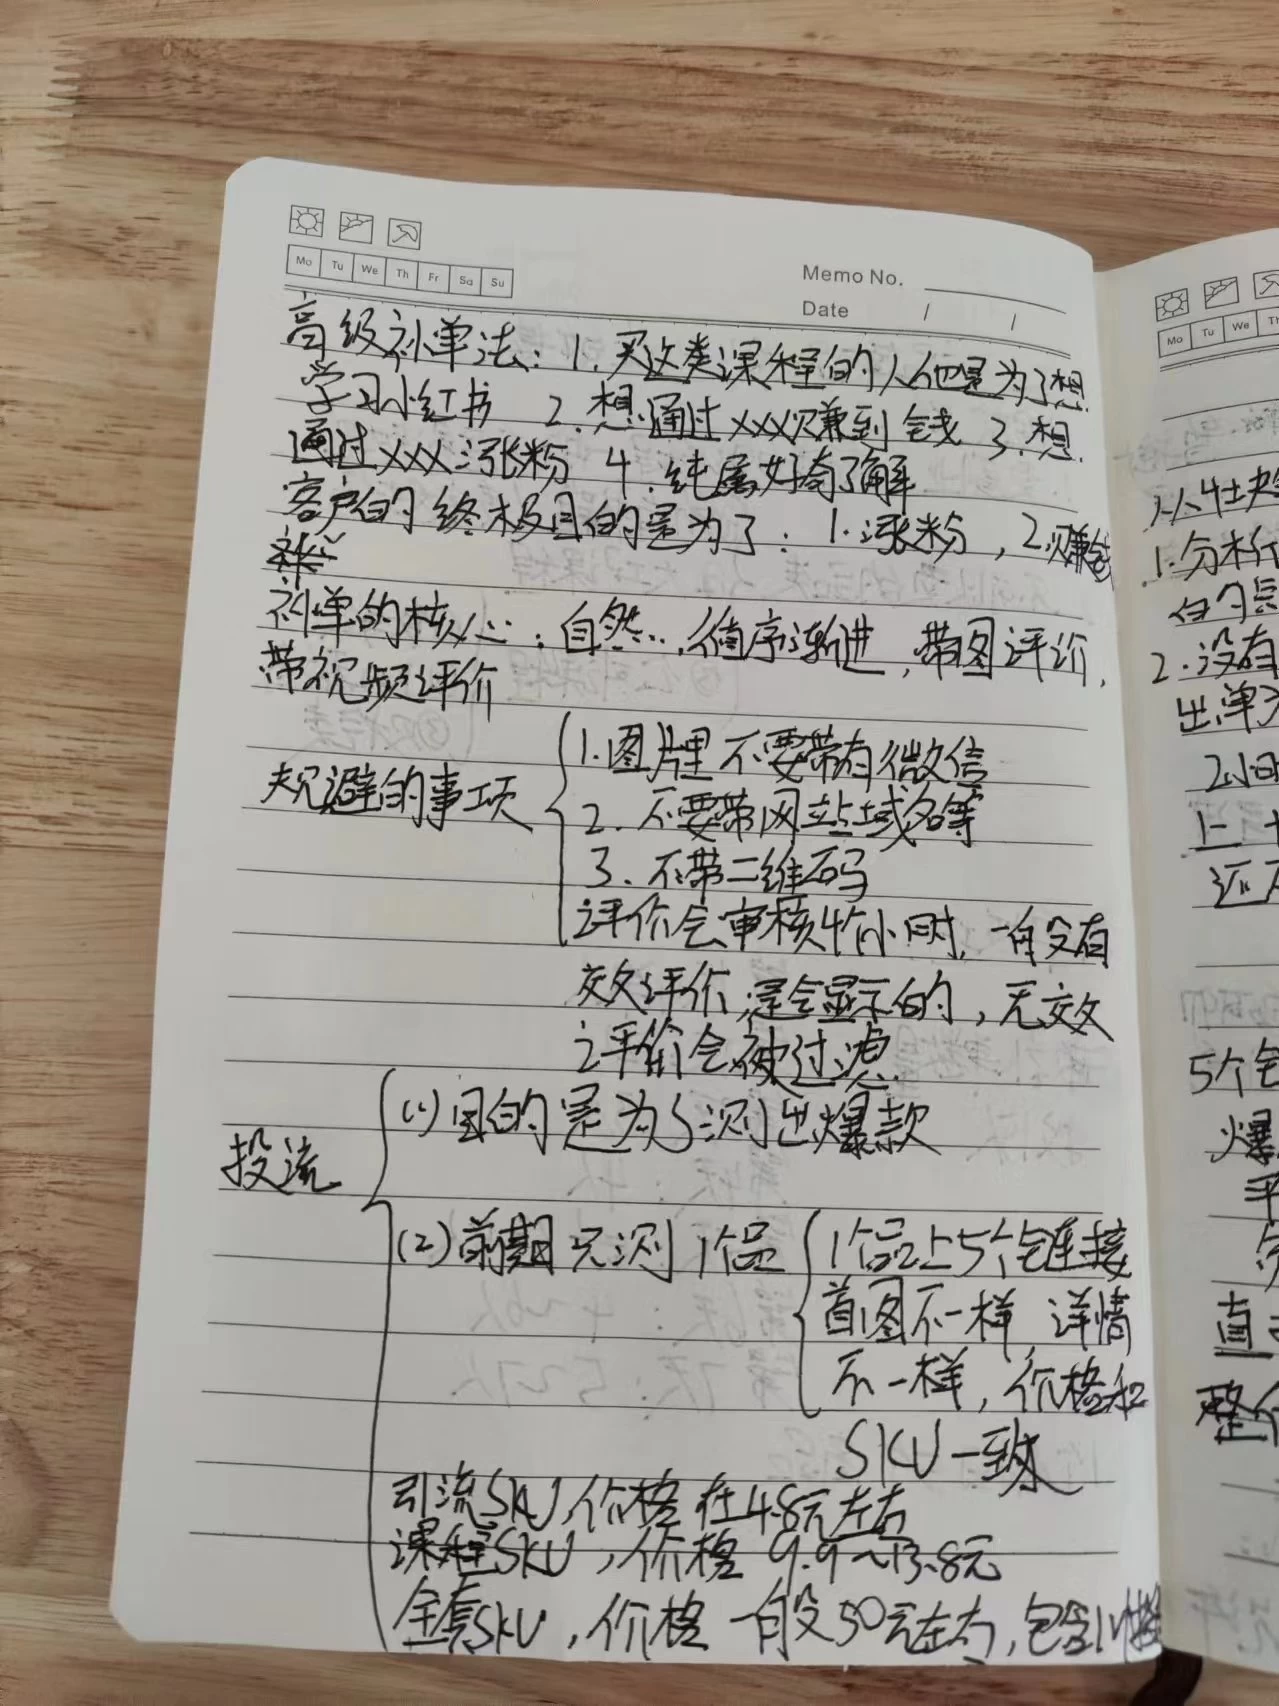 Mo Tu We Th Fr Sa Su
Memo No.
Date / /
高级补单法：1.买这类课程的人他是为了想
学习小红书 2.想通过xxx赚到钱 3.想
通过xxx涨粉 4.纯属好奇了解
客户的终极目的是为了：1.涨粉，2.赚钱
补单的核心：自然，循序渐进，带图评价，
带视频评价
规避的事项
1.图片里不要带有微信
2.不要带网站域名等
3.不带二维码
评价会审核4个小时，一般有
效评价，是会显示的，无效
评价会被过滤
投流
(1)目的是为了测出爆款
(2)前期只测1个品
1个品上5个链接
首图不一样 详情
不一样，价格和
SKU一致
引流SKU，价格在4.8元左右
课程SKU，价格9.9~13.8元
全套SKU，价格一般50元左右，包含
Mo Tu We Th
1.分析
2.没有
出单
5个链
爆
直
整个